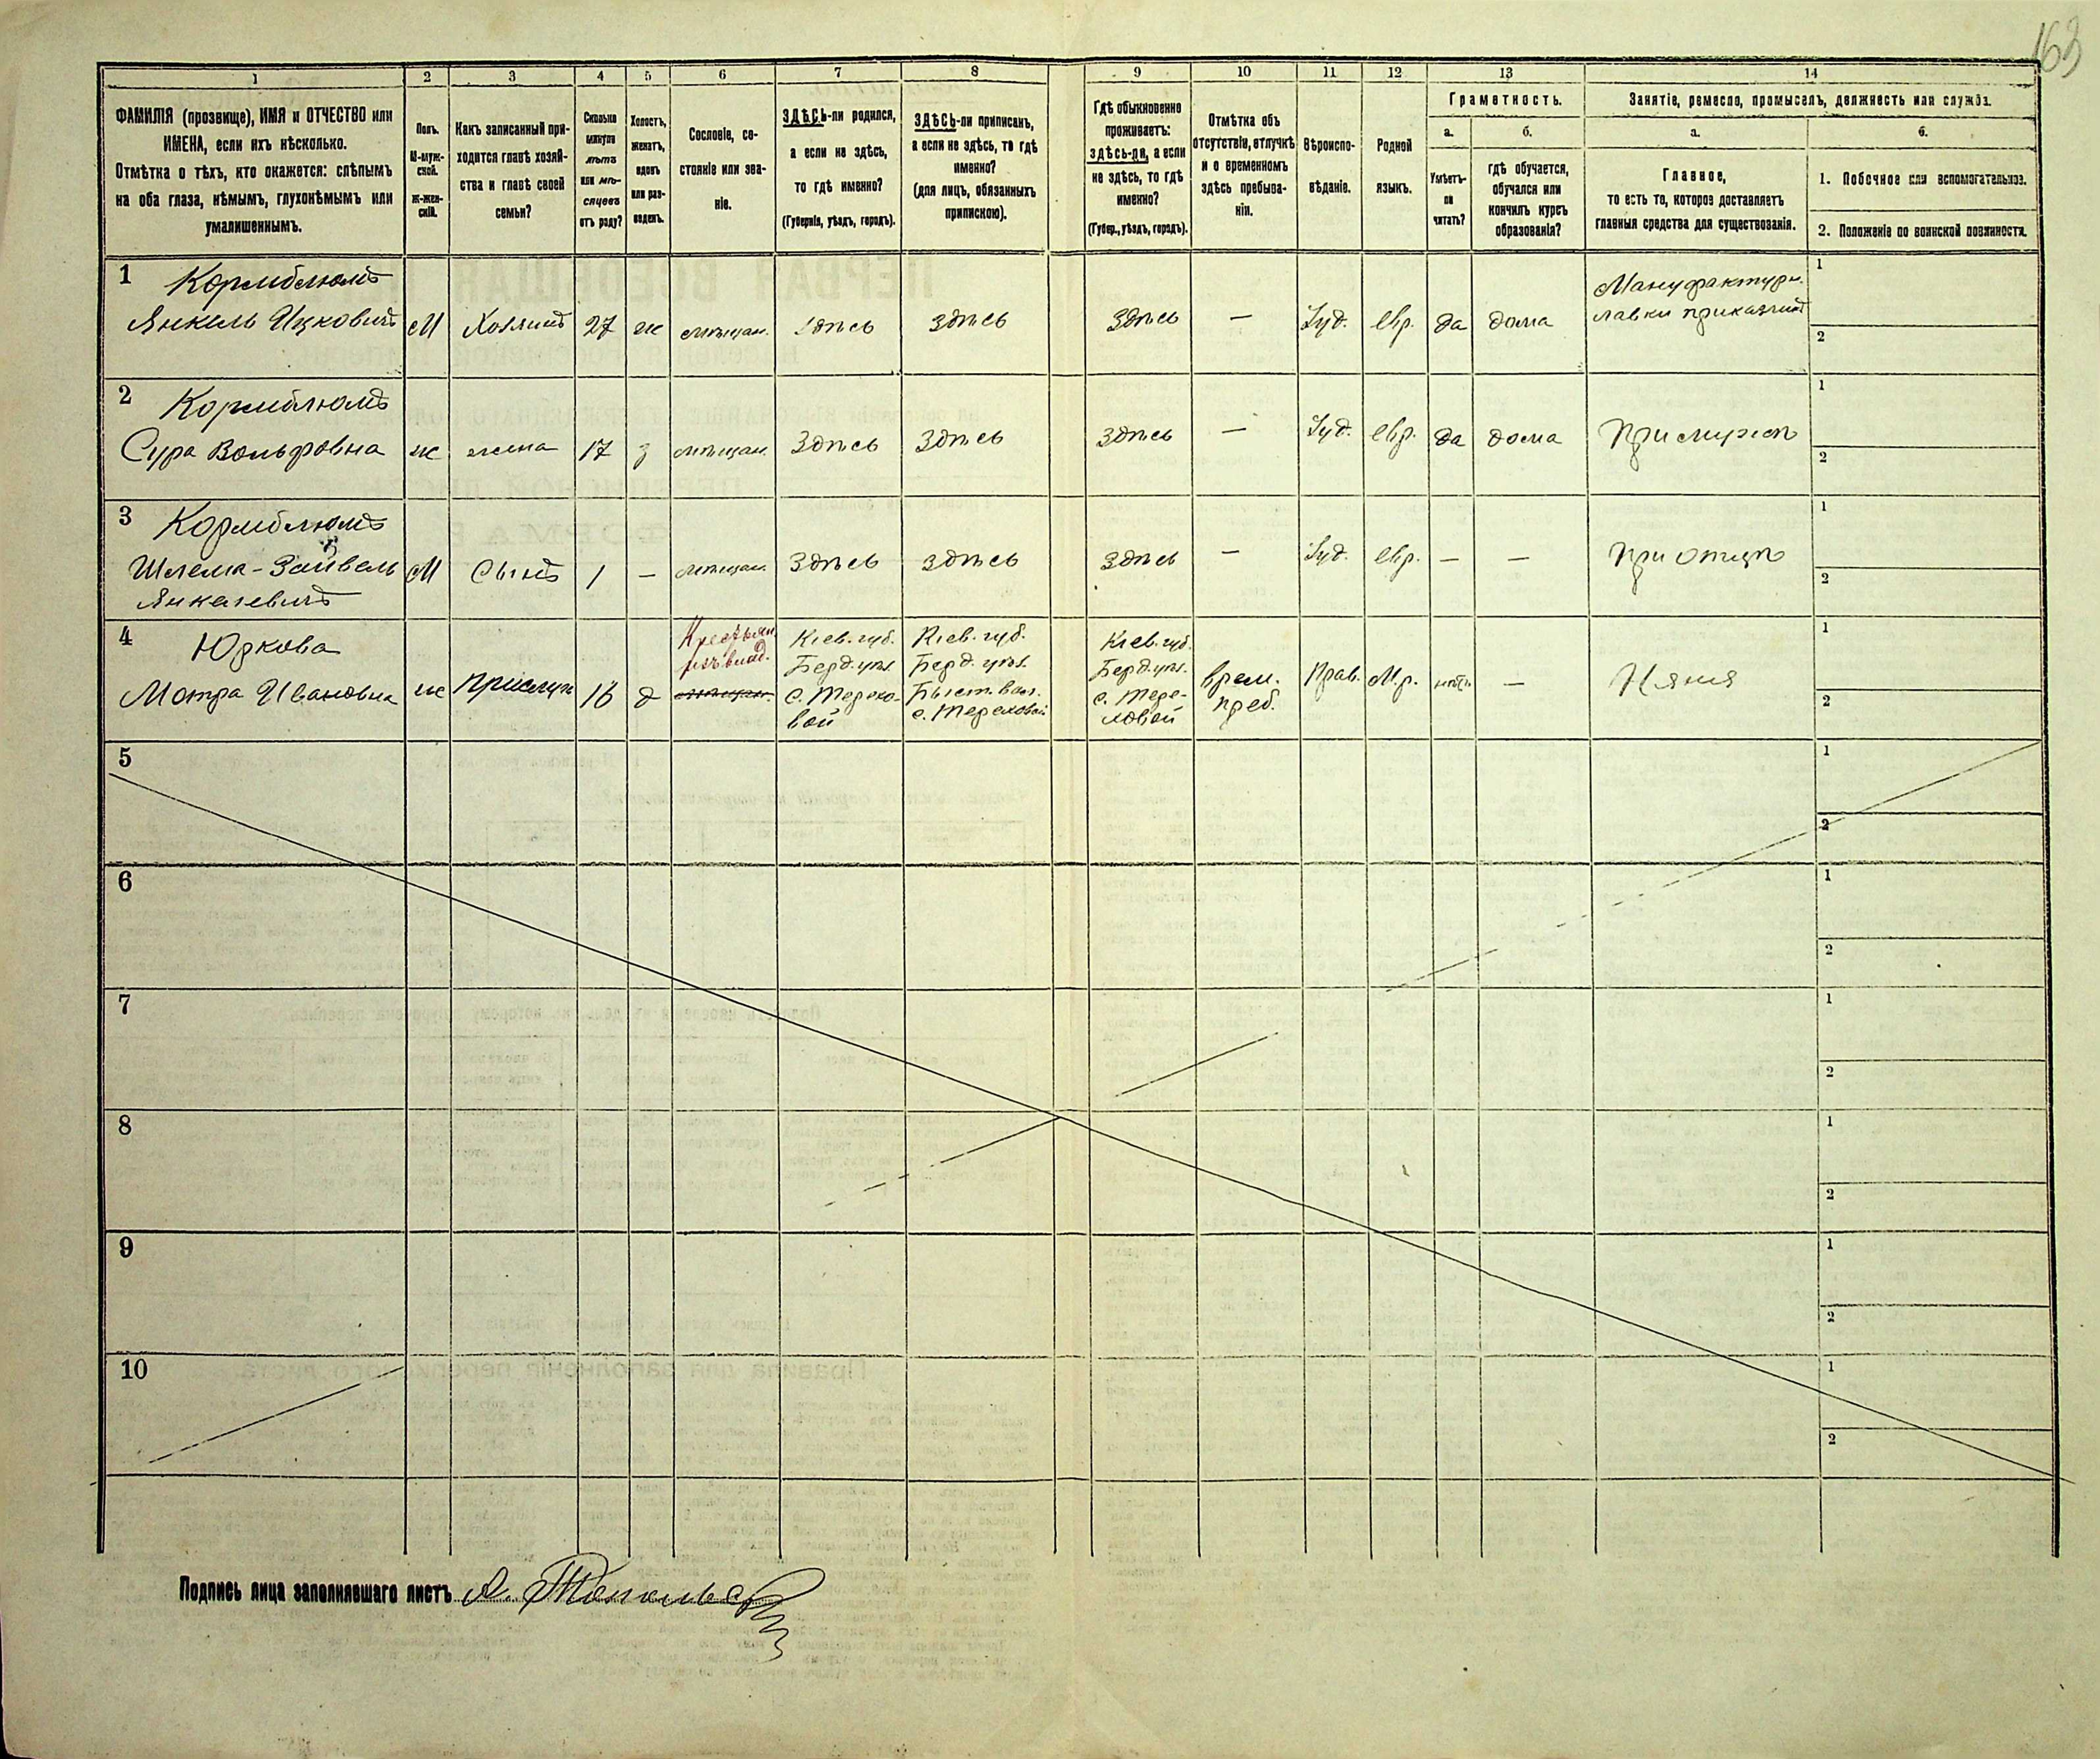 163
1 2 3 4 5 6 7 8 9 10 11 12 13 14
ФАМИЛІЯ (прозвище), ИМЯ и ОТЧЕСТВО или
ИМЕНА, если ихъ нѣсколько.
Отмѣтка о тѣхъ, кто окажется: слѣпымъ
на оба глаза, нѣмымъ, глухонѣмымъ или
умалишеннымъ.
Полъ.
М-муж-
ской.
Ж-жен-
скій.
Какъ записанный при-
ходится главѣ хозяй-
ства и главѣ своей
семьи?
Сколько
минуло
лѣтъ
или мѣ-
сяцевъ
отъ роду?
Холостъ,
женатъ,
вдовъ
или раз-
веденъ.
Сословіе, со-
стояніе или зва-
ніе.
ЗДѢСЬ-ли родился,
а если не здѣсь,
то гдѣ именно?
(Губернія, уѣздъ, городъ).
ЗДѢСЬ-ли приписанъ,
а если не здѣсь, то гдѣ
именно?
(для лицъ, обязанныхъ
припискою).
Гдѣ обыкновенно
проживаетъ:
здѣсь-ли, а если
не здѣсь, то гдѣ
именно?
(Губер., уѣздъ, городъ).
Отмѣтка объ
отсутствіи, отлучкѣ
и о временномъ
здѣсь пребыва-
ніи.
Вѣроиспо-
вѣданіе.
Родной
языкъ.
Грамотность.
а.
Умѣетъ-
ли
читать?
б.
гдѣ обучается,
обучался или
кончилъ курсъ
образованія?
Занятіе, ремесло, промыселъ, должность или служба.
а.
Главное,
то есть то, которое доставляетъ
главныя средства для существованія.
б.
1. Побочное или вспомогательное.
2. Положеніе по воинской повинности.
1 Кормблюмъ
Янкель Ицковичъ М Хозяинъ 27 ж мѣщан. Здѣсь Здѣсь Здѣсь — Іуд. евр. да дома
Мануфактурн.
лавки приказчикъ
1
2
2 Кормблюмъ
Сура Вольфовна ж жена 17 з мѣщан. Здѣсь Здѣсь Здѣсь — Іуд. евр. да дома При мужѣ
1
2
3 Кормблюмъ
Шлема-Зайвель
Янкелевичъ М Сынъ 1 — мѣщан. Здѣсь Здѣсь Здѣсь — Іуд. евр. — — При отцѣ
1
2
4 Юркова
Мотра Ивановна ж прислуг 16 д
Крестьян.
изъ влад.
мѣщан.
Кіев. губ.
Берд. уѣз.
с. Терехо-
вой
Кіев. губ.
Берд. уѣз.
Быст. вол.
с. Тереховой
Кіев. губ.
Берд. уѣз.
с. Тере-
ховой
врем.
преб.
Прав. М.р. нѣтъ — Няня
1
2
5
1
2
6
1
2
7
1
2
8
1
2
9
1
2
10
1
2
Подпись лица заполнявшаго листъ А.